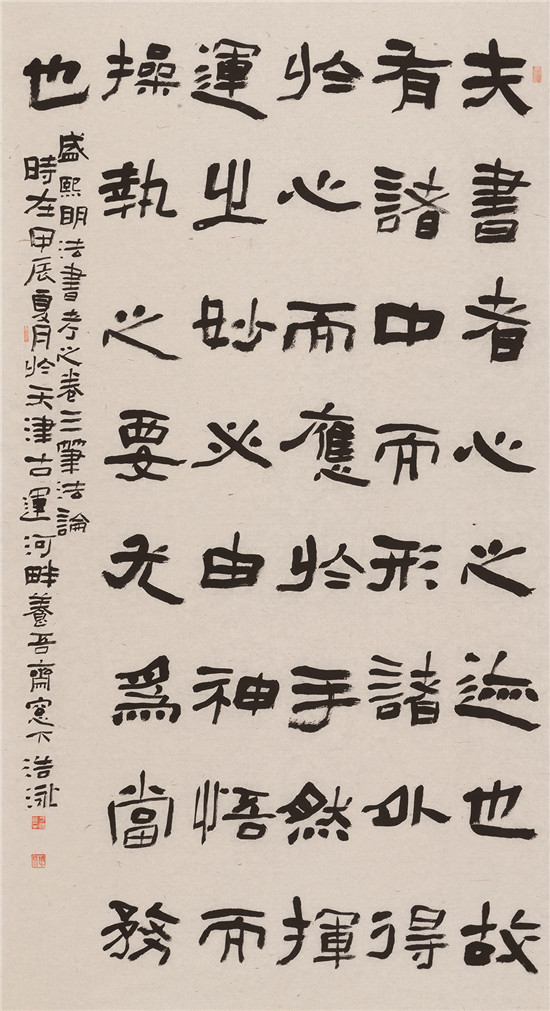 夫書者心之迹也故
有諸中而形諸外得
於心而應於手然揮
運之妙必由神悟而
操執之要尤爲當務
也
盛熙明法書考之卷三筆法論
時在甲辰夏月於天津古運河畔養吾齋窓下浩泳